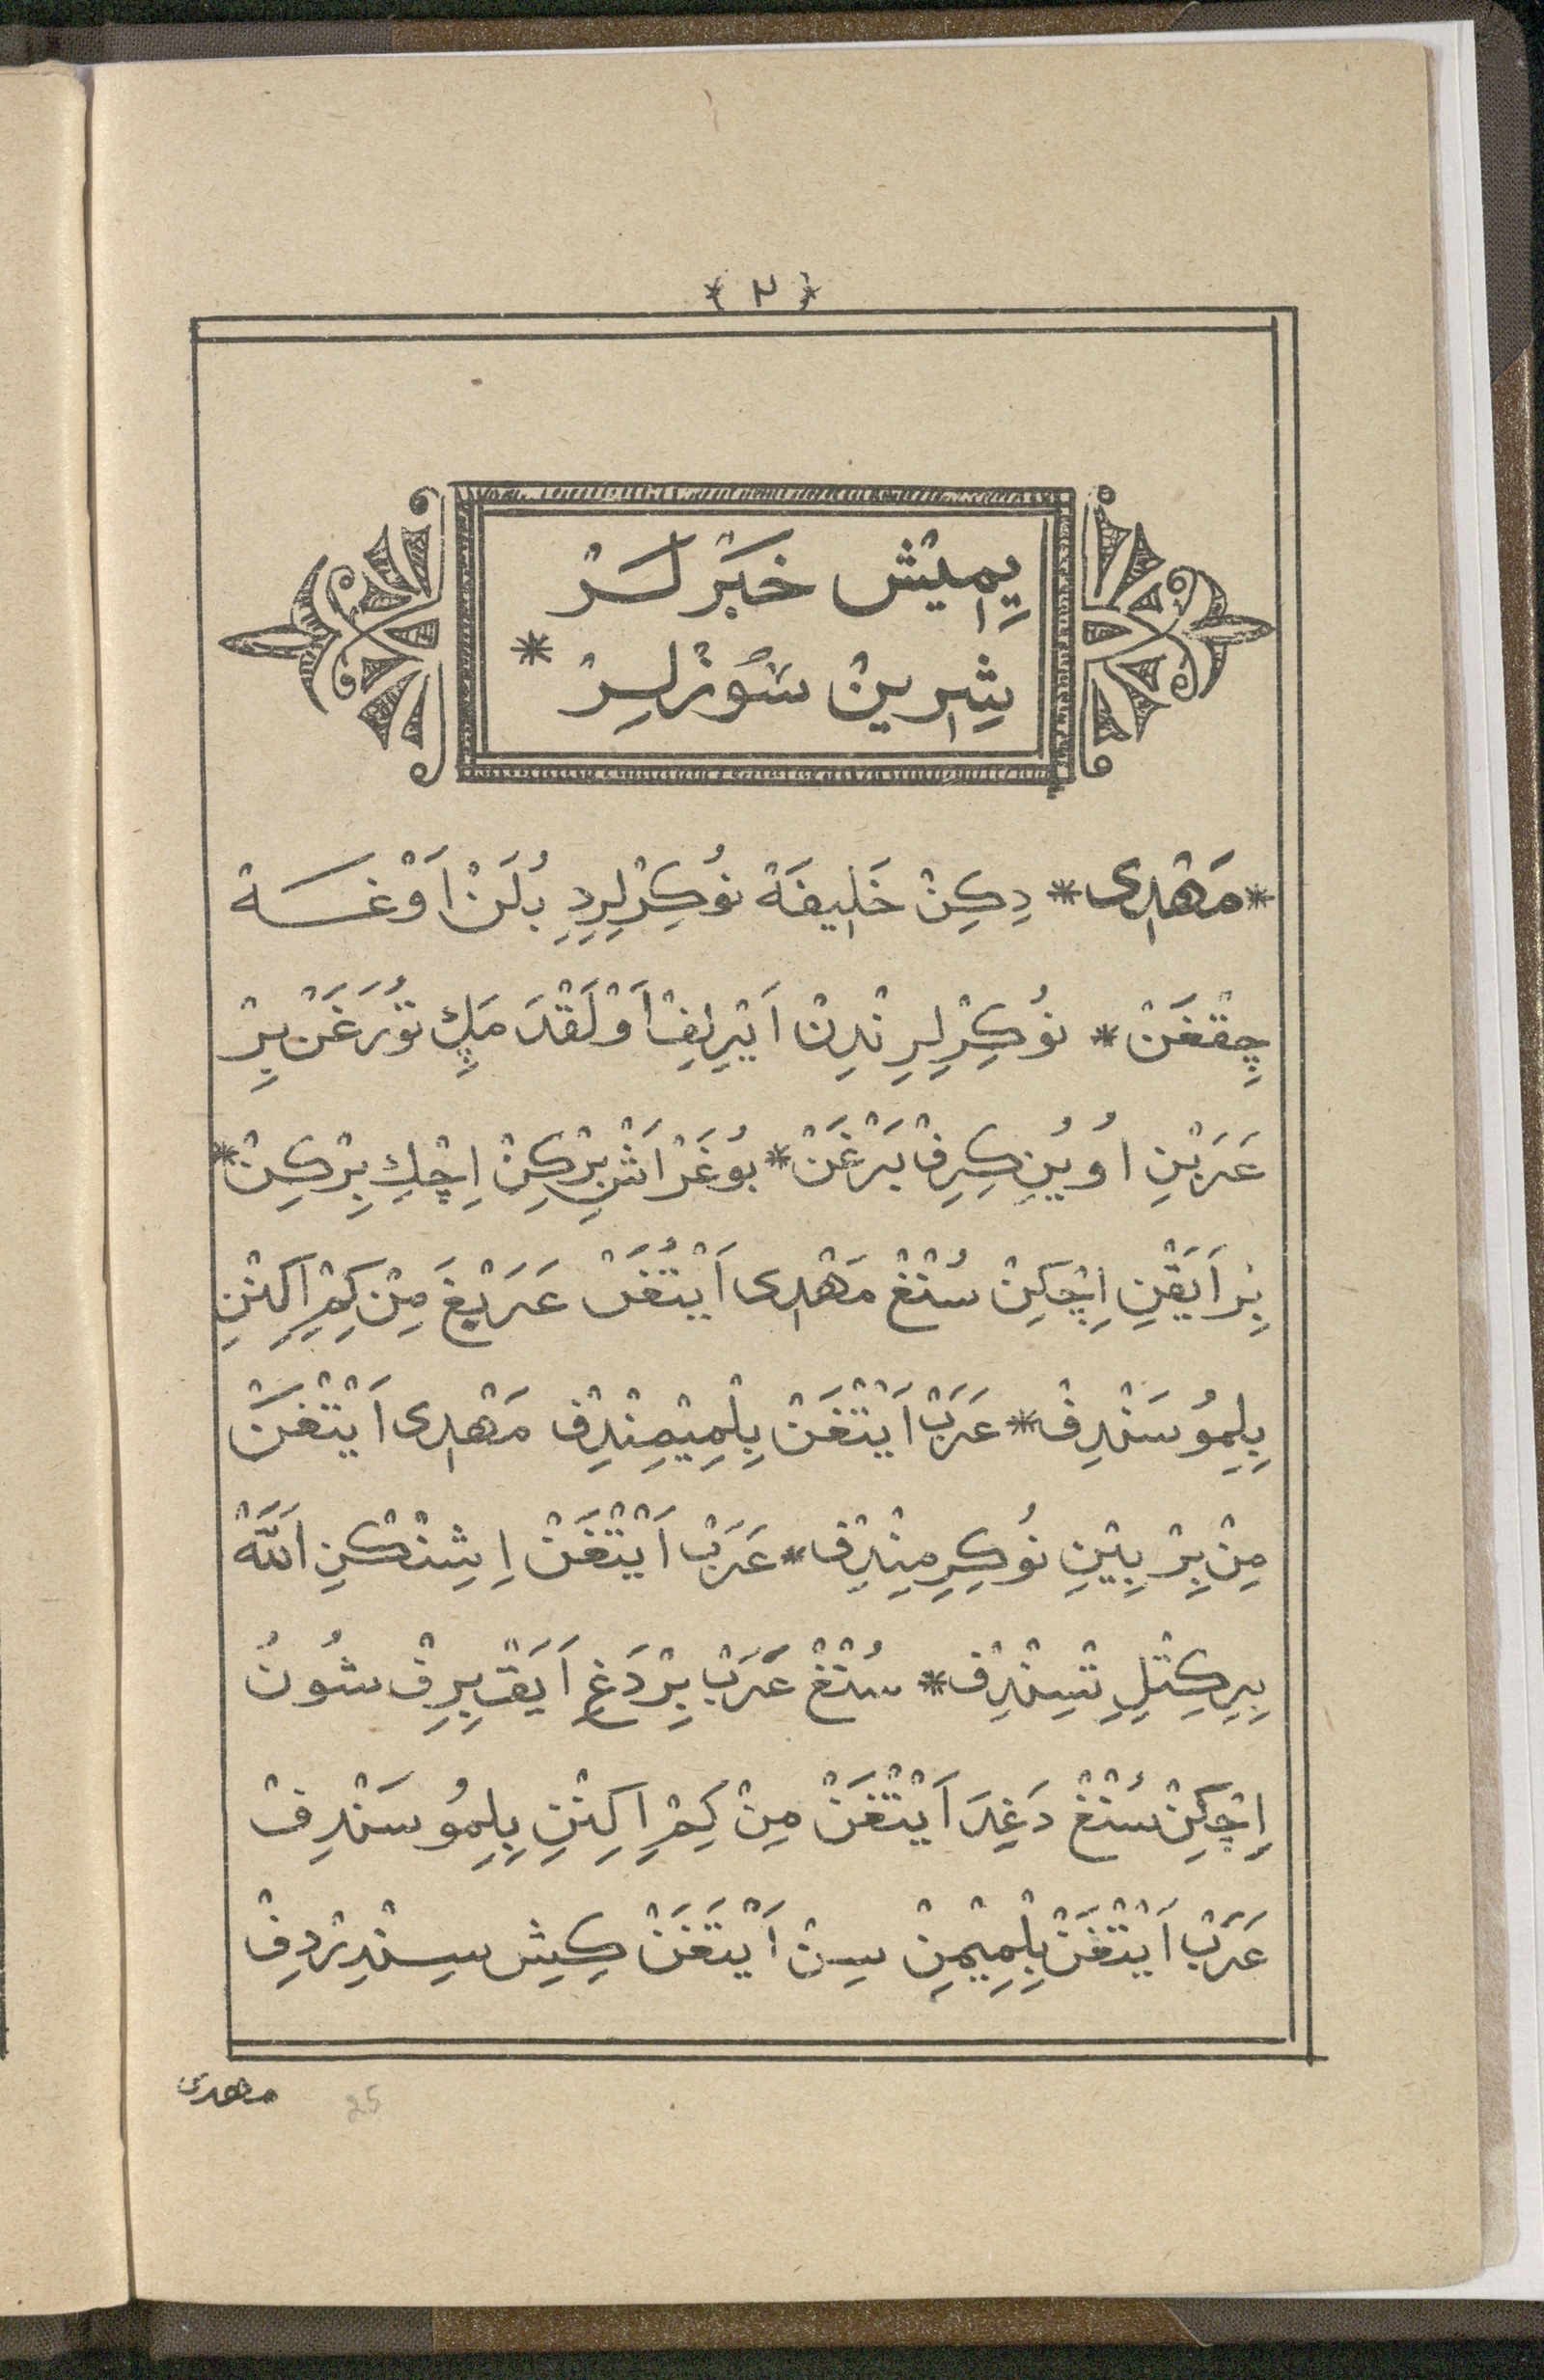 ﴿ ٢ ﴾
يِمِيْش خَبَرْ لَرْ
شِرِينْ سُوْزْلِرْ *
* مَهْدِى * دِكِنْ خَلِيفَهْ نُوكِرْلِرِدِ بُلَنْ اَوْغَسَهْ
چِقْغَنْ * نُوكِرْلِرِ نْدِنْ اَيْرِلِفْ اَوْلَقْدَ مَكِ تُوْرَغَنْ بِرْ
عَرَبْنِ اُويُنِ كِرِفْ بَرْغَنْ * بُوغَرْ اَشْ بِرْكِنْ اِچْكِ بِرْكِنْ *
بِرْ اَيَقْنِ اِچْكِنْ سُنْغْ مَهْدِى اَيْتُغَنْ عَرَبْغَ مِنْ كِمْ اِكِنْنِ
بِلِمُوسَنْدِفْ * عَرَبْ اَيْتْغَنْ بِلْمِيْمِنْدِفْ مَهْدِى اَيْتْغَنْ
مِنْ بِرْ بِيْنِ نُوكِرِمِنْدِفْ * عَرَبْ اَيْتْغَنْ اِشِنْكْنِ اَللَّهْ
بِرِكِتْلِ تْسِنْدِفْ * سُنْغْ عَرَبْ بِرْ دَغِ اَيَقْ بِرِفْ شُونُ
اِچْكِنْ سُنْغْ دَغِدَ اَيْتْغَنْ مِنْ كِمْ اِكِنْنِ بِلِمُوسَنْدِفْ
عَرَبْ اَيْتْغَنْ بِلْمِيْمِنْ سِنْ اَيْتَغَنْ كِشِ سِنْدِرْدِفْ
مهدى
25